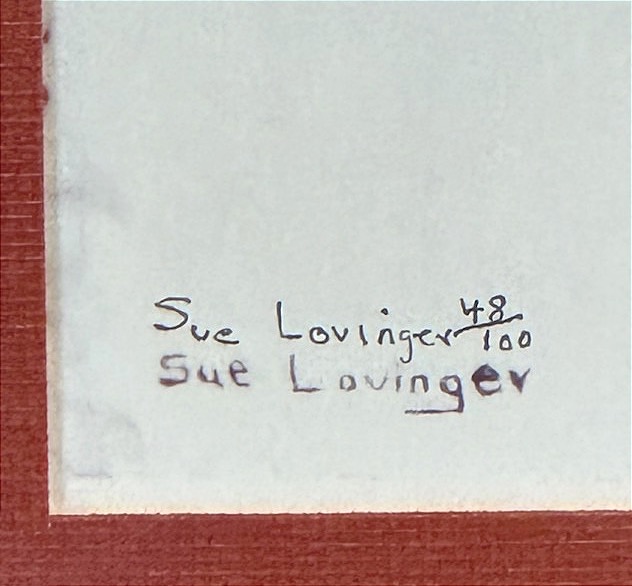 Sue Lovinger 48/100
Sue Lovinger